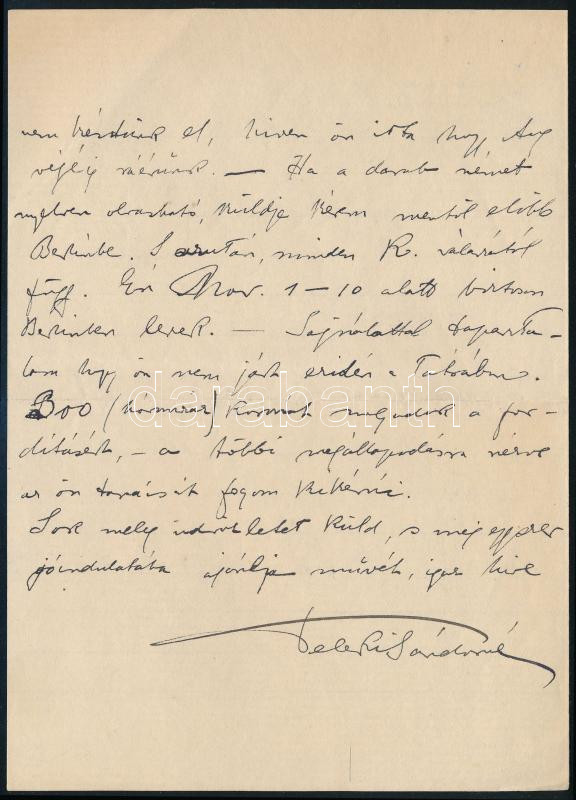 nem késtünk el, hiven ön irta hogy Aug
végéig ráérünk. — Ha a darab német
nyelven olvasható, küldje kérem mentől előbb
Berlinbe. S azután, minden R. válaszától
függ. Én Nov. 1–10 alatt biztosan
Berlinben leszek. — Sajnálattal tapaszta-
lom hogy ön nem járt ezidén a Tátrában.
300 (háromszáz) koronát megadok a for-
dításért, – a többi megállapodásra nézve
az ön tanácsát fogom kikérni.
Sok meleg üdvözletet küld, s még egyszer
jóindulatába ajánlja művét, igaz híve
Teleki Sándorné
darabanth